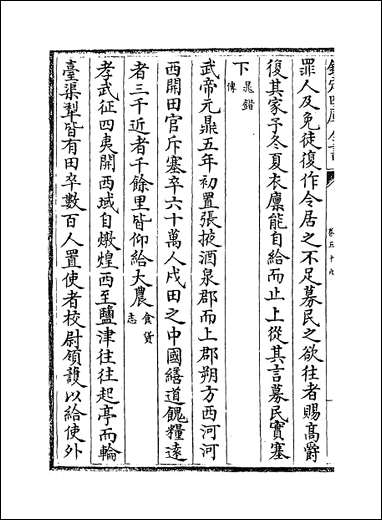 欽定四庫全書
卷五十九
罪人及免徒復作令居之不足募民之欲往者賜高爵
復其家予冬夏衣廩能自給而止上從其言募民實塞
下 鼂錯傳
武帝元鼎五年初置張掖酒泉郡而上郡朔方西河河
西開田官斥塞卒六十萬人戍田之中國繕道餽糧遠
者三千近者千餘里皆仰給大農 食貨志
孝武征四夷開西域自燉煌西至鹽津往往起亭而輪
臺渠犁皆有田卒數百人置使者校尉領護以給使外